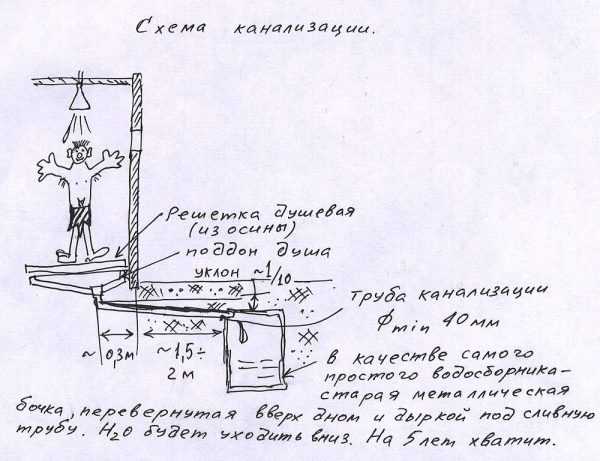 Схема канализации.
Решетка душевая
(из осины)
поддон душа
уклон ~1/10
труба канализации
Фmin 40мм
~ 0,3м
~1,5÷
2 м
в качестве самого
простого водосборника-
старая металлическая
бочка, перевернутая вверх дном и дыркой под сливную
трубу. H2O будет уходить вниз. На 5 лет хватит.